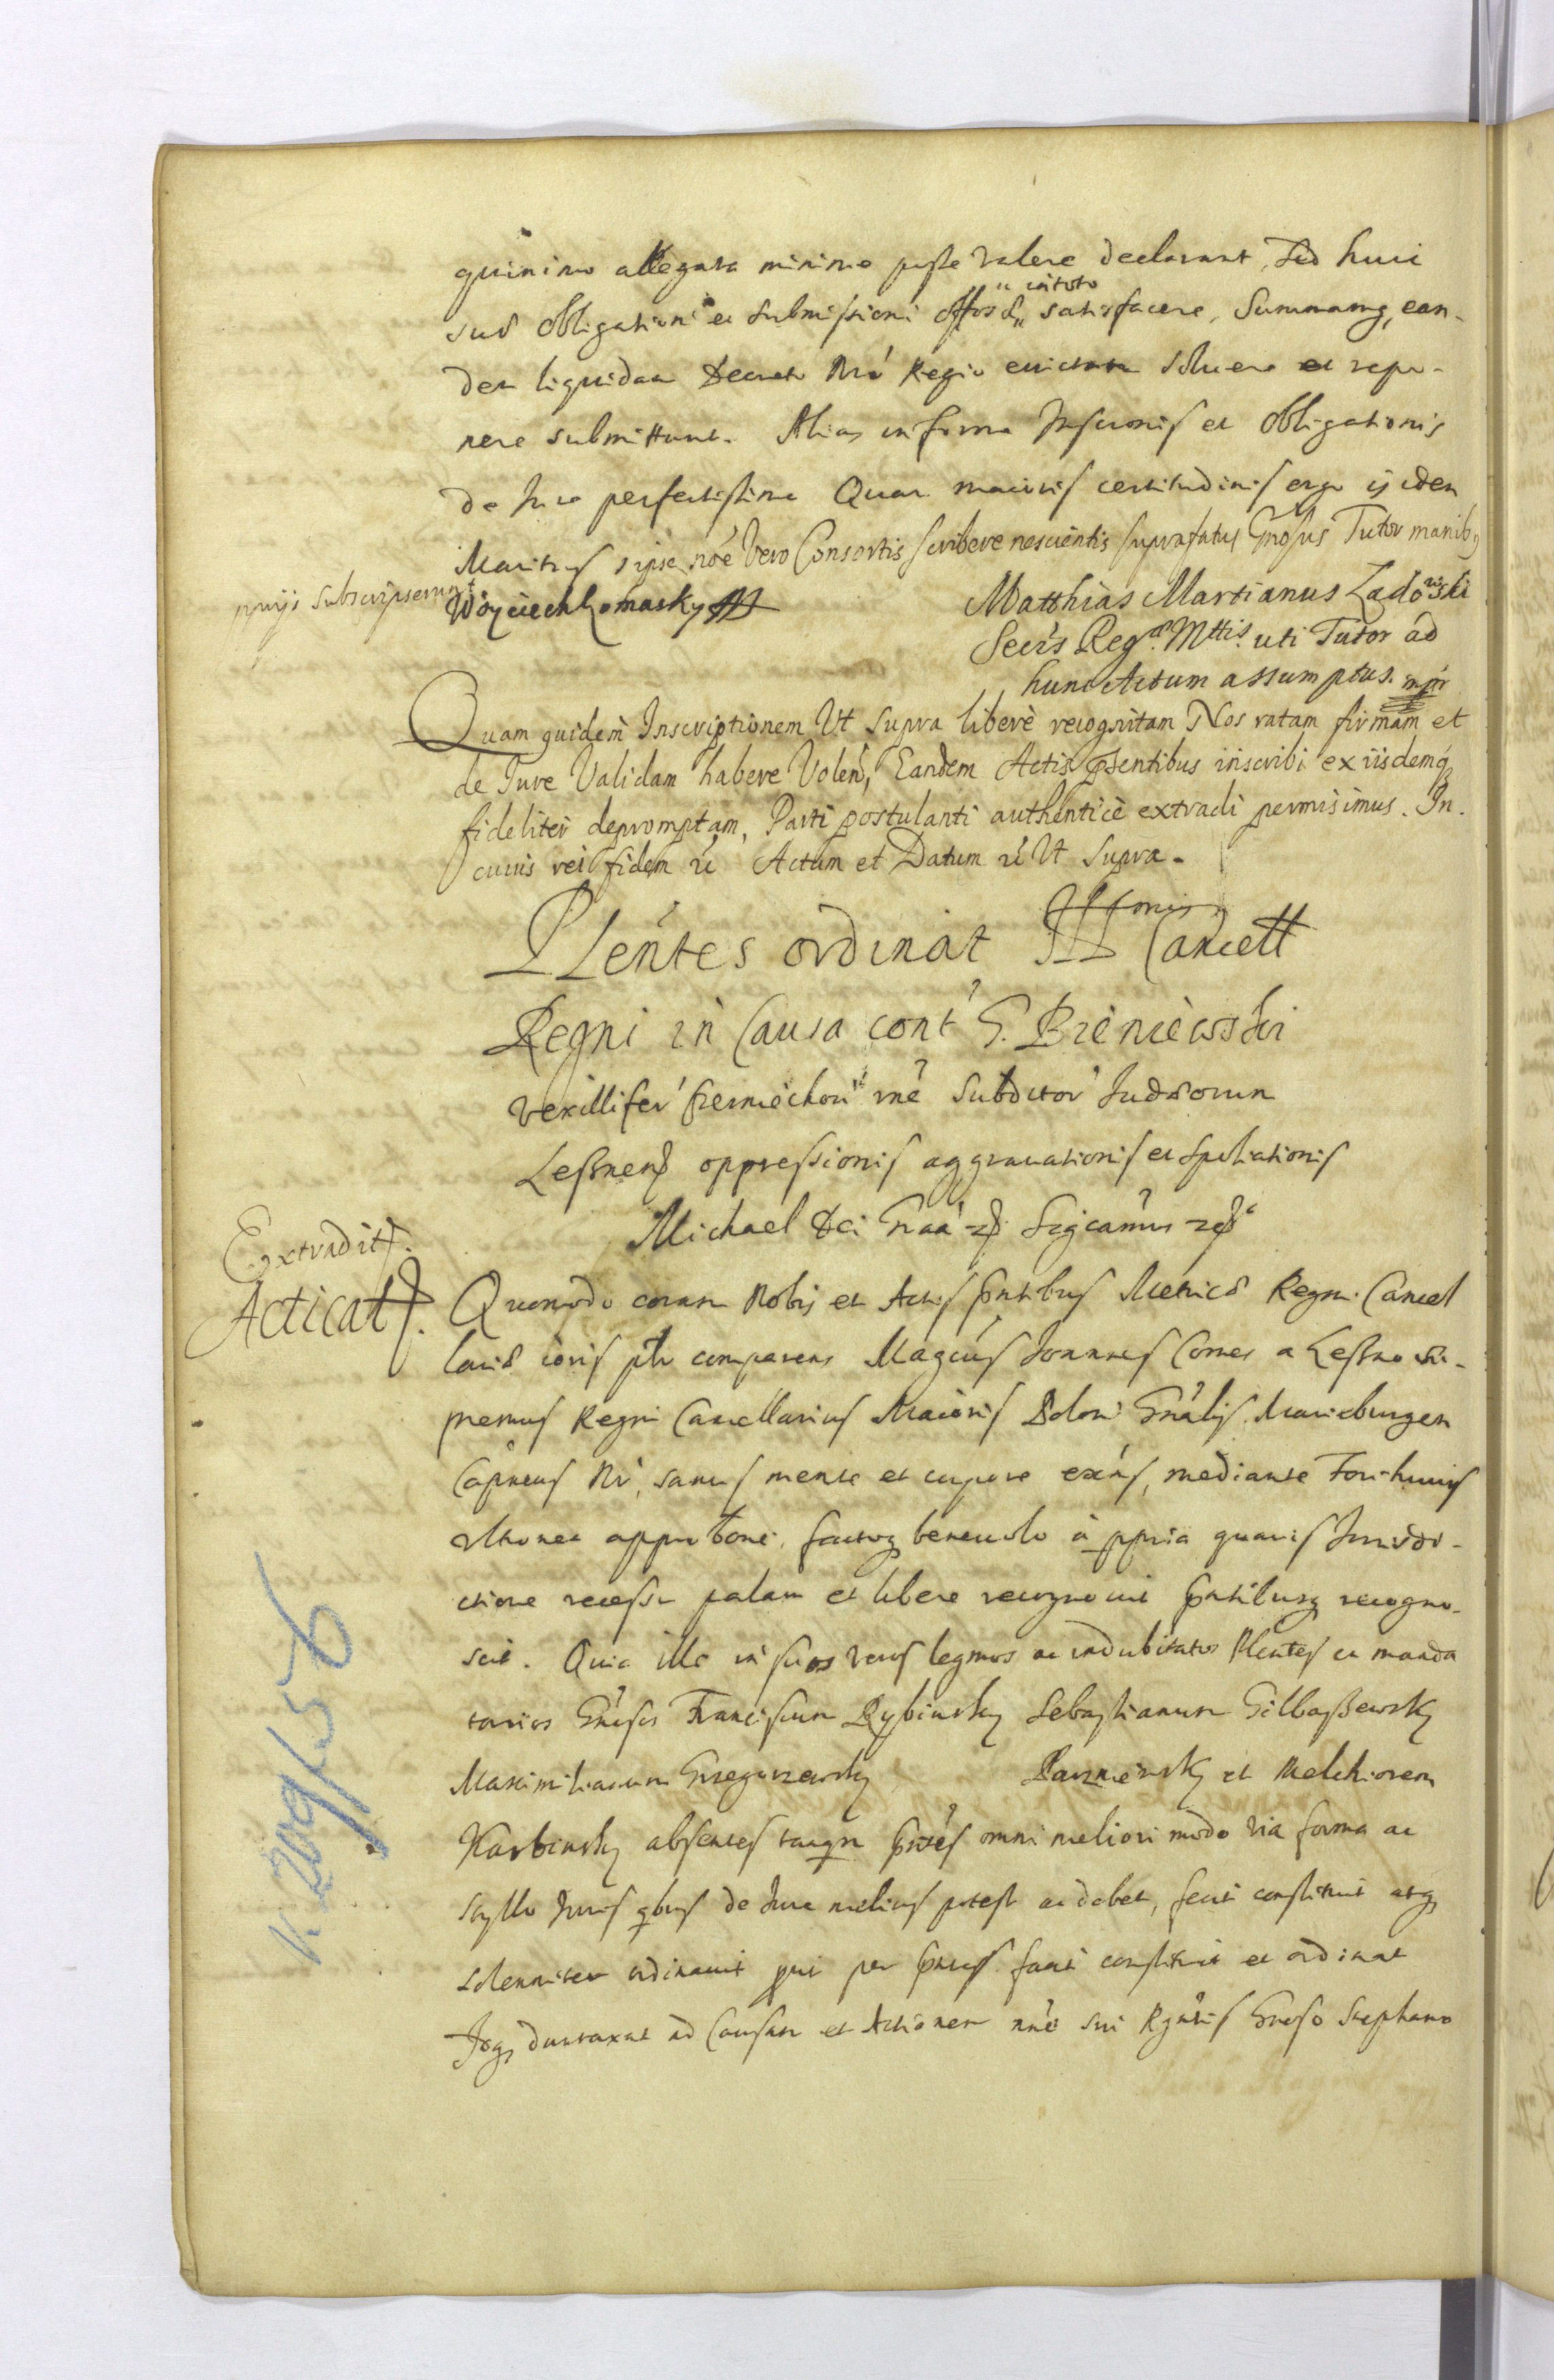 quinimo allegata minime posse valere declarant, sed huic
suæ obligationi et submissioni " intoto satisfacere, Summamq, ean-
dem liquidam Decreto Nro Regio evictam soluere et repo-
nere submittunt. Alias in forma Inscrionis et Obligationis
de Jure perfectissima Quam maioris certitudinis ergo ijdem
Maritus sipse, nõe Vero Consortis scribere nescientis suprafatus Gnosus Tutor manibq
ppriis subscripserunt
Woyciech Lomasky
Matthias Martianus Ladowski
Secrs Regæ Mttis. uti Tutor ad
hunc Actum assumptus. mpr
Quam quidem Inscriptionem Ut supra liberè recognitam Nos ratam firmam et
de Jure Validam habere Volen, Eandem Actis pſentibus inscribi ex iisdemq
fideliter depromptam, Parti postulanti authenticè extradi permisimus. In
cuius rei fidem rc Actum et Datum rc Ut Supra.
PLentes ordinat Ill Cancell
Regni in Causa cont G. Bieniewski
vexillifer Czerniechou rne Subditor Judæorum
Lesznens oppressionis aggrauationis et spoliationis
Michael Dei Graa rc Sigcamus rc
Extradit.
Acticat.
Quomodo coram Nobis et Actis pntibus Metricæ Regni Cancel
lariæ ioris plr comparens Magcus Joannes Comes a Leszno Su-
premus Regni Cancellarius Maioris Polon Gnalis Marieburgen
Capneus Nr, sanus mente et corpore exns, mediante Fori huius
approbone, factoq beneuolo à ppria quauis Jurisdi-
ctione recessu palam et libere recognouit pntibusq recogno-
scit. Quia ille in suos veros legmos ac indubitatos Plentes et manda
tarios Gnosos Franciscum Rybinsky Sebastianum Gilbaszewsky
Maximilianum Gregorzewsky Parzniewsky et Melchiorem
Karbinsky absentes tanqm pntes omni meliori modo via forma ac
stylo Juris qbus de Jure melius potest ac debet, fecit constituit atq
solenniter ordinauit prout per pntes facit constituit et ordinat
Idq duntaxat ad Causam et Actionem rne sui Rgntis Gnoso Stephano
K 209/156